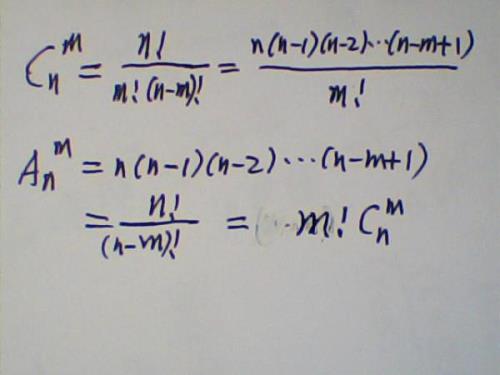 C_n^m = n!/(m!(n-m)!) = n(n-1)(n-2)···(n-m+1)/m!
A_n^m = n(n-1)(n-2)···(n-m+1)
= n!/(n-m)! = m! C_n^m